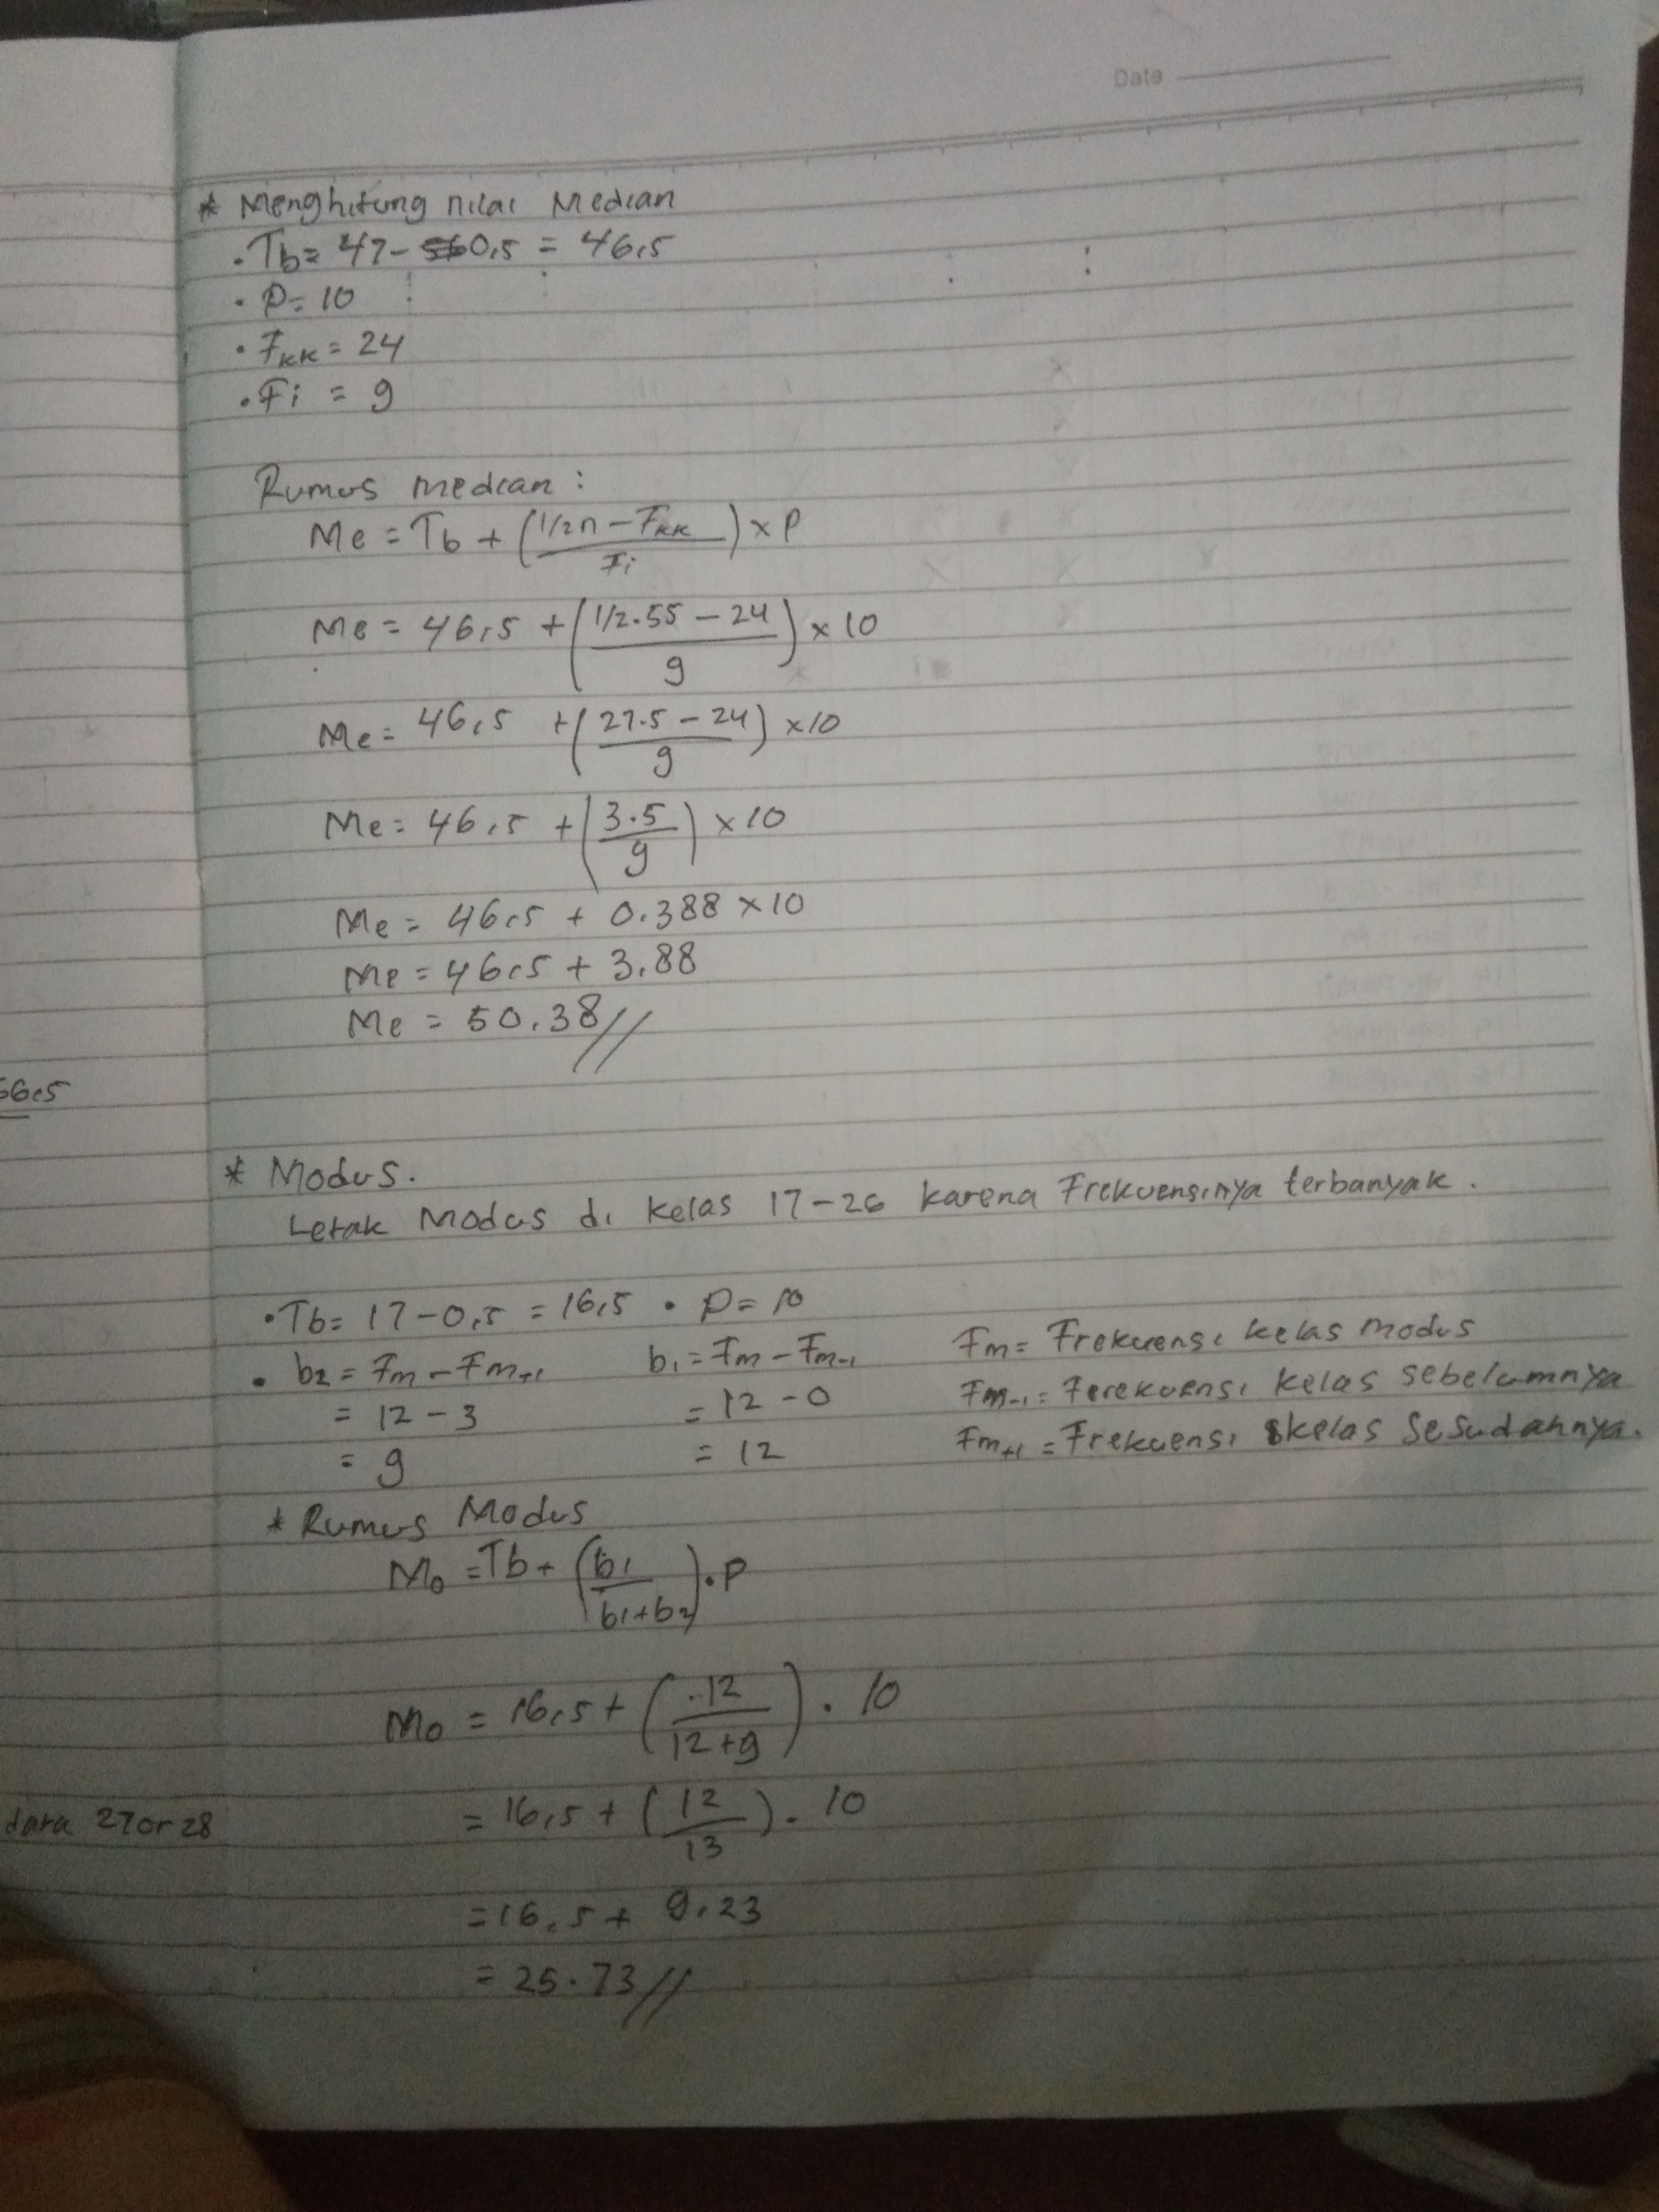 Date
* Menghitung nilai Median
• Tb = 47 - 0,5 = 46,5
• P = 10
• Fkk = 24
• Fi = 9
Rumus median :
Me = Tb + (1/2n - Fkk / Fi) x P
Me = 46,5 + (1/2.55 - 24 / 9) x 10
Me = 46,5 + (27.5 - 24 / 9) x 10
Me = 46,5 + (3.5 / 9) x 10
Me = 46,5 + 0.388 x 10
Me = 46,5 + 3.88
Me = 50.38 //
56,5
* Modus.
Letak Modus di kelas 17-26 karena Frekuensinya terbanyak.
• Tb = 17 - 0,5 = 16,5 • P = 10
• b2 = Fm - Fm+1 b1 = Fm - Fm-1 Fm = Frekuensi kelas modus
= 12 - 3 = 12 - 0 Fm-1 = Ferekuensi kelas sebelumnya
= 9 = 12 Fm+1 = Frekuensi kelas Sesudahnya.
* Rumus Modus
Mo = Tb + (b1 / b1+b2) . P
Mo = 16,5 + (.12 / 12+9) . 10
data 27 or 28
= 16,5 + (12 / 13) . 10
= 16,5 + 9,23
= 25.73 //